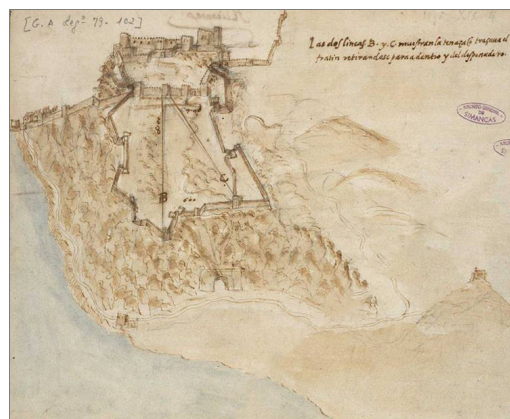 [G. A Legº 79. 102]
Las dos lineas B. y. C. muestran la tenaza q̃ traçava el
fratin retirandose para adentro y del
B
C
600
ARCHIVO GENERAL
DE
SIMANCAS